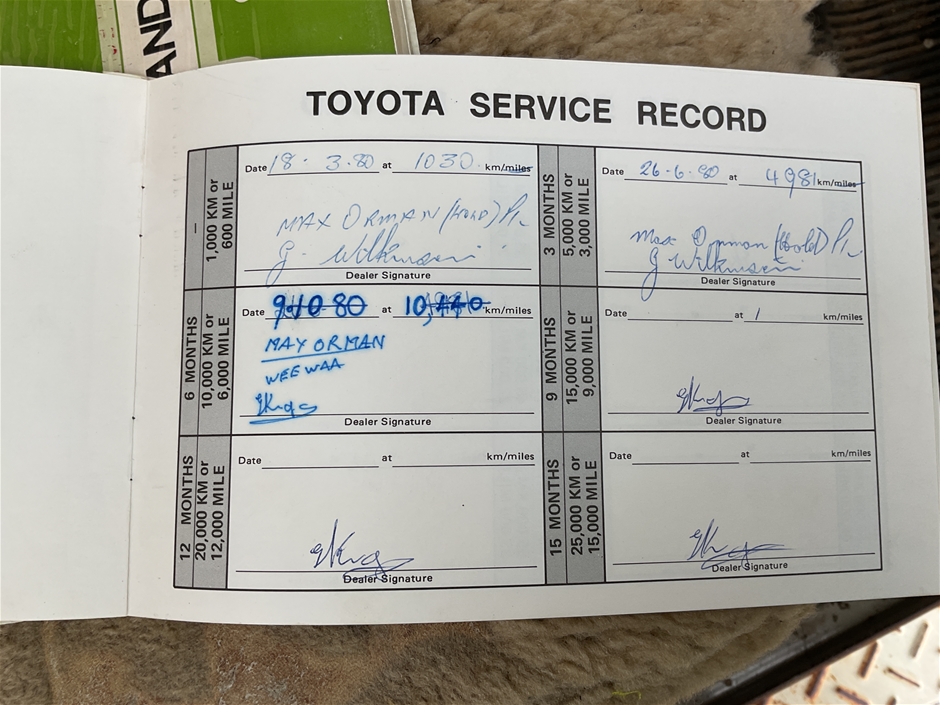 AND
TOYOTA SERVICE RECORD
–
1,000 KM or
600 MILE
Date 18 . 3.80 at 1030. km/miles
MAX ORMAN (HOLD) P/L
G. Wilkinson
Dealer Signature
3 MONTHS
5,000 KM or
3,000 MILE
Date 26.6.80 at 4981 km/miles
Max Orman (Hold) P/L
G Wilkinson
Dealer Signature
6 MONTHS
10,000 KM or
6,000 MILE
Date 9.10.80 at 10,440 km/miles
MAX ORMAN
WEE WAA
Dealer Signature
9 MONTHS
15,000 KM or
9,000 MILE
Date at / km/miles
Dealer Signature
12 MONTHS
20,000 KM or
12,000 MILE
Date at km/miles
Dealer Signature
15 MONTHS
25,000 KM or
15,000 MILE
Date at km/miles
Dealer Signature